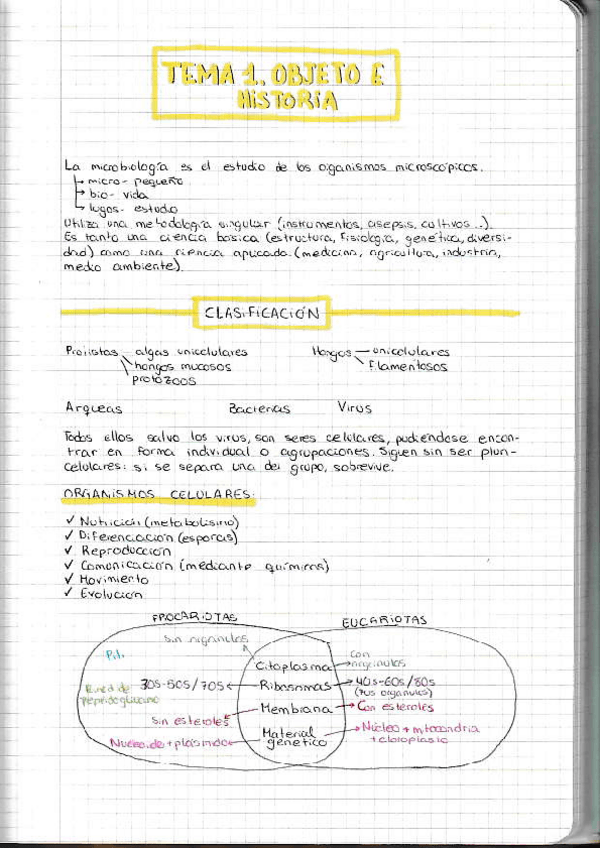 TEMA 1. OBJETO E
HISTORIA
La microbiología es el estudio de los organismos microscópicos.
micro- pequeño
bio- vida
logos- estudio
Utiliza una metodología singular (instrumentos, asepsis, cultivos...).
Es tanto una ciencia básica (estructura, fisiología, genética, diversi-
dad) como una ciencia aplicada (medicina, agricultura, industria,
medio ambiente).
CLASIFICACIÓN
Protistas algas unicelulares Hongos unicelulares
hongos mucosos filamentosos
protozoos
Arqueas Bacterias Virus
Todos ellos salvo los virus, son seres celulares, pudiéndose encon-
trar en forma individual o agrupaciones. Siguen sin ser pluri-
celulares: si se separa una del grupo, sobrevive.
ORGANISMOS CELULARES:
✓ Nutrición (metabolismo)
✓ Diferenciación (esporas)
✓ Reproducción
✓ Comunicación (mediante químicos)
✓ Movimiento
✓ Evolución
PROCARIOTAS EUCARIOTAS
sin orgánulos Citoplasma con orgánulos
Pared de peptidoglucano
30S-50S/70S Ribosomas 40S-60S/80S
(70s orgánulos)
sin esteroles Membrana Con esteroles
Nucleoide + plásmido Material genético Núcleo + mitocondria
+ cloroplasto